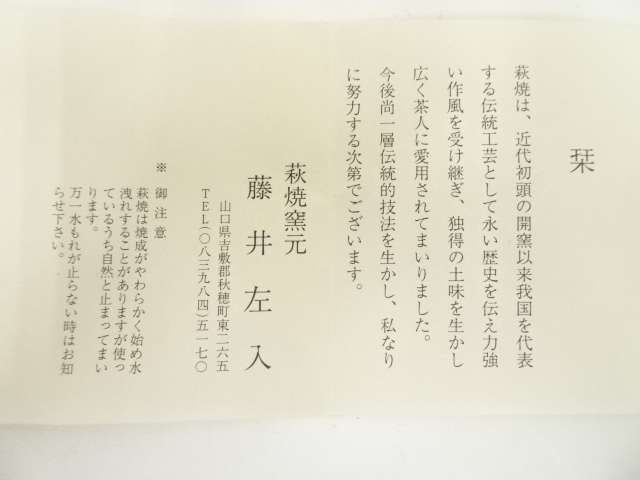 栞
萩焼は、近代初頭の開窯以来我国を代表
する伝統工芸として永い歴史を伝え力強
い作風を受け継ぎ、独得の土味を生かし
広く茶人に愛用されてまいりました。
今後尚一層伝統的技法を生かし、私なり
に努力する次第でございます。
萩焼窯元
藤井左入
山口県吉敷郡秋穂町東二六五
TEL(〇八三九八四)五一七〇
※ 御注意
萩焼は焼成がやわらかく始め水
洩れすることがありますが使っ
ているうち自然と止まってまい
ります。
万一水もれが止らない時はお知
らせ下さい。